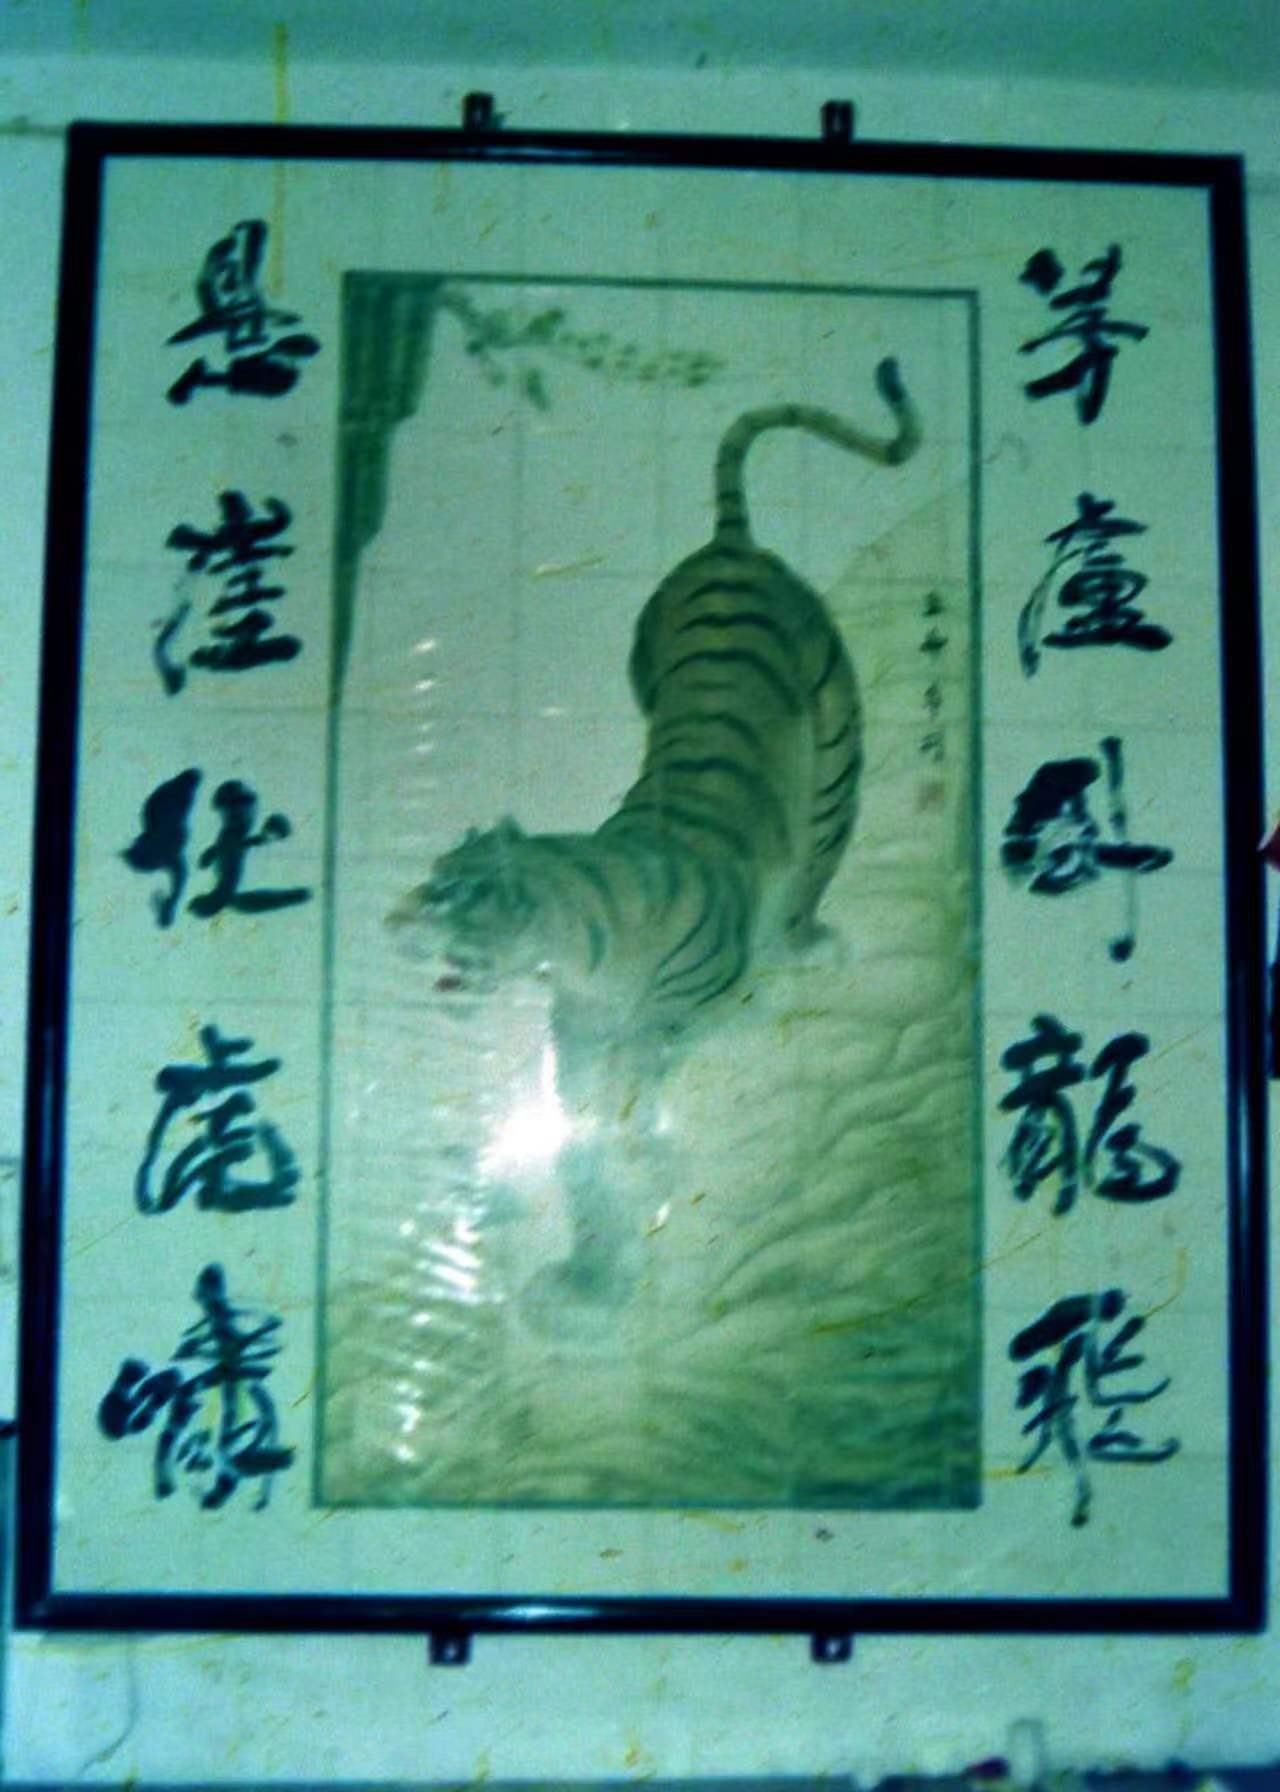 茅廬卧龍飛
悬崖伏虎嘯